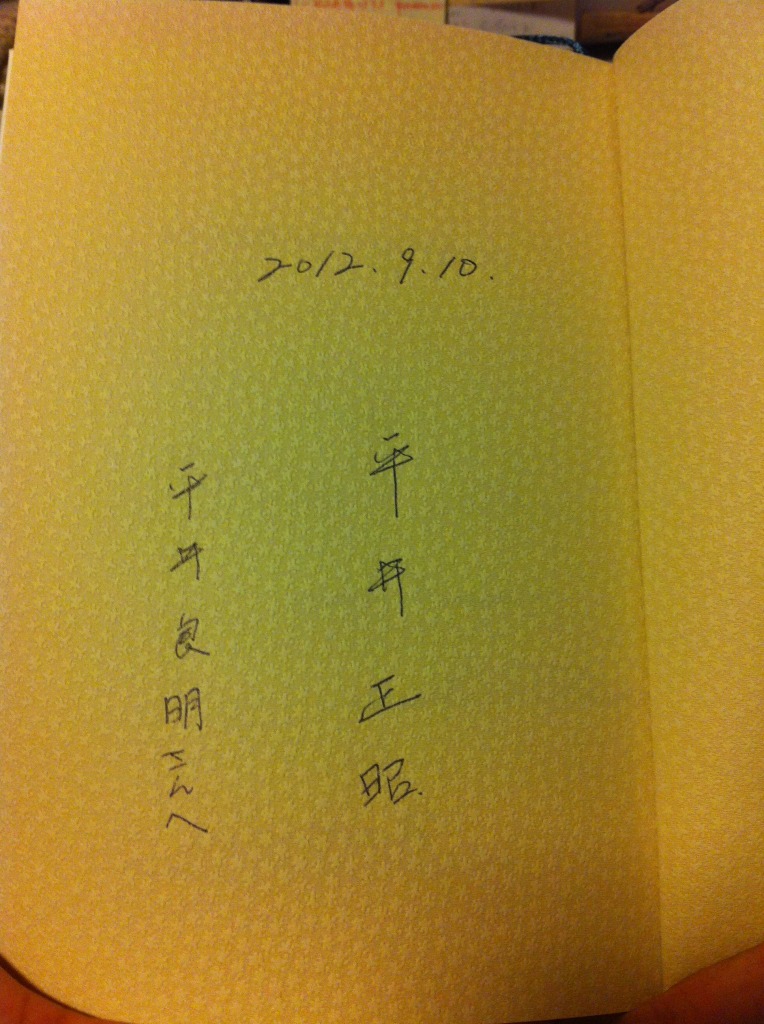 2012.9.10.
平井正昭
平井良明さんへ